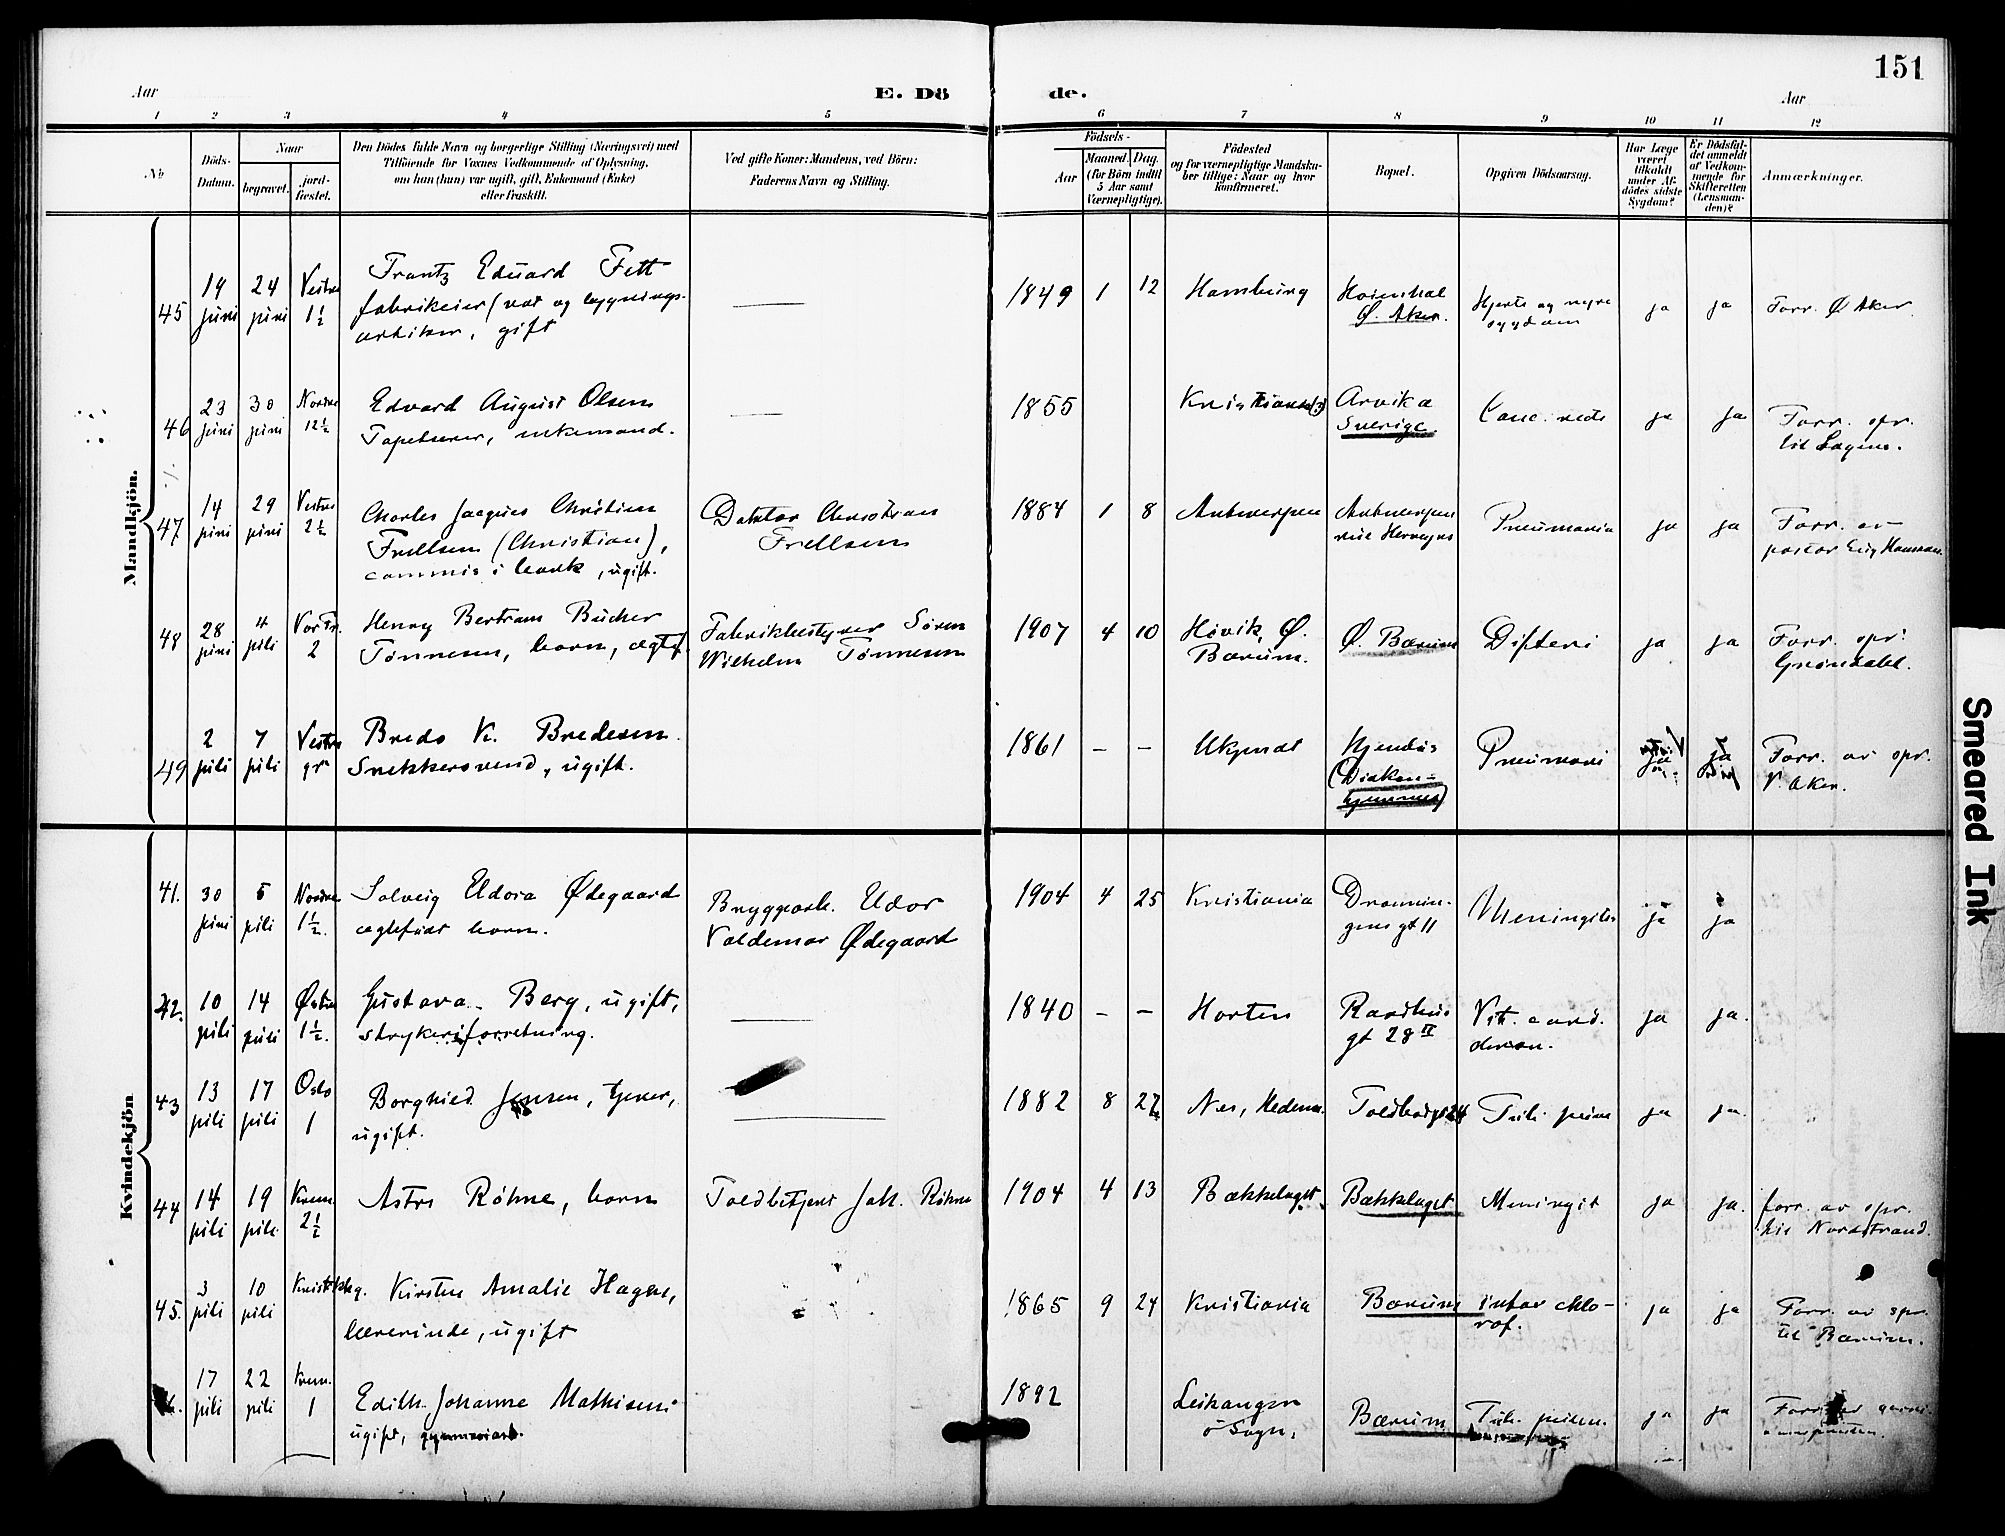 151
Aar
E. Dö
de.
Aar
1 2 3 4 5 6 7 8 9 10 11 12
No
Döds-
Datum.
Naar
begravet.
jord-
fæstet.
Den Dödes fulde Navn og borgerlige Stilling (Næringsvei) med
Tilföiende for Voxnes Vedkommende af Oplysning,
om han (hun) var ugift, gift, Enkemand (Enke)
eller fraskilt.
Ved gifte Koner: Mandens, ved Börn:
Faderens Navn og Stilling.
Födsels-
Aar
Maaned. Dag.
(for Börn indtil
5 Aar samt
Værnepligtige).
Födested
og for værnepligtige Mandska-
ber tillige: Naar og hvor
konfirmeret.
Bopæl.
Opgiven Dödsaarsag.
Har Læge
været
tilkaldt
under Af-
dödes sidste
Sygdom?
Er Dödsfal-
det anmeldt
af Vedkom-
mende for
Skifteretten
(Lensman-
den)?
Anmærkninger.
Mandkjön.
45
19 juni
24 juni
Vestre 1½
Frantz Eduard Fett
fabrikeier (vat og bygnings-
artikler, gift
1849 1 12
Hamburg
Høienhal
Ø. Aker.
Hjerte og nyre
sygdom
ja
ja
Forr. Ø Aker
46
23 juni
30 juni
Nordre 12½
Edvard August Olsen
Tapetserer, enkemand.
1855
Kristiania (3)
Arvika
Sverige.
Canc.
ja
ja
Forr. spr.
til Sagene.
47
14 juni
29 juni
Vestre 2½
Charles Jacques Christian
Frellsen (Christian),
commis i bank, ugift.
Doktor Christian
Frellsen
1884 1 8
Antwerpen
Antwerpen
Pneumonia
ja
ja
Forr. av
pastor Eug Hansson.
48
28 juni
4 juli
Vor Fr. 2
Henry Bertram Bucher
Tønnesen, barn, ægtef.
Fabrikbestyrer Søren
Wilhelm Tønnesen
1907 4 10
Høvik, Ø.
Bærum.
Ø. Bærum
Difteri
ja
ja
Forr. spr.
Grøndahl.
49
2 juli
7 juli
Vestre gr
Bredo K. Bredesen
Snekkersvend, ugift.
1861 – –
Ukjendt
(Diakon-
hjemmet)
Pneumoni
ja
ja
Forr. av spr.
V. Aker.
Kvindekjön
41.
30 juni
5 juli
Nordre 1½
Solveig Eldora Ødegaard
ægtefødt barn.
Bryggearb. Edor
Valdemar Ødegaard
1904 4 25
Kristiania
Dronnin-
gens gt 11
Meningitis
ja
ja
42.
10 juli
14 juli
Østre 1½.
Gustava Berg, ugift,
strykeriforretning.
1840 – –
Horten
Raadhus
gt 28 II
Vit. cord.
ja
ja.
43
13 juli
17 juli
Oslo 1
Borghild Jensen, tjener,
ugift.
1882 8 27
Nes, Hedem.
Toldbodgt 24
Tub. pulm
ja
ja.
44
14 juli
19 juli
Krem. 2½
Astri Røhne, barn
Toldbetjent Joh. Røhne
1904 4 13
Bækkelaget
Bækkelaget
Meningit
ja
ja.
forr. av spr.
til Nordstrand.
45.
3 juli
10 juli
Kirsten Amalie Hagen,
lærerinde, ugift
1865 9 24
Kristiania
Bærum
intox chlo-
rof.
ja
ja
Forr. av spr.
til Bærum.
17 juli
22 juli
Krem. 1
Edith Johanne Mathisen
ugift,
1892
Leikanger
Sogn.
Bærum
Tub. pulm.
ja
ja
Smeared Ink